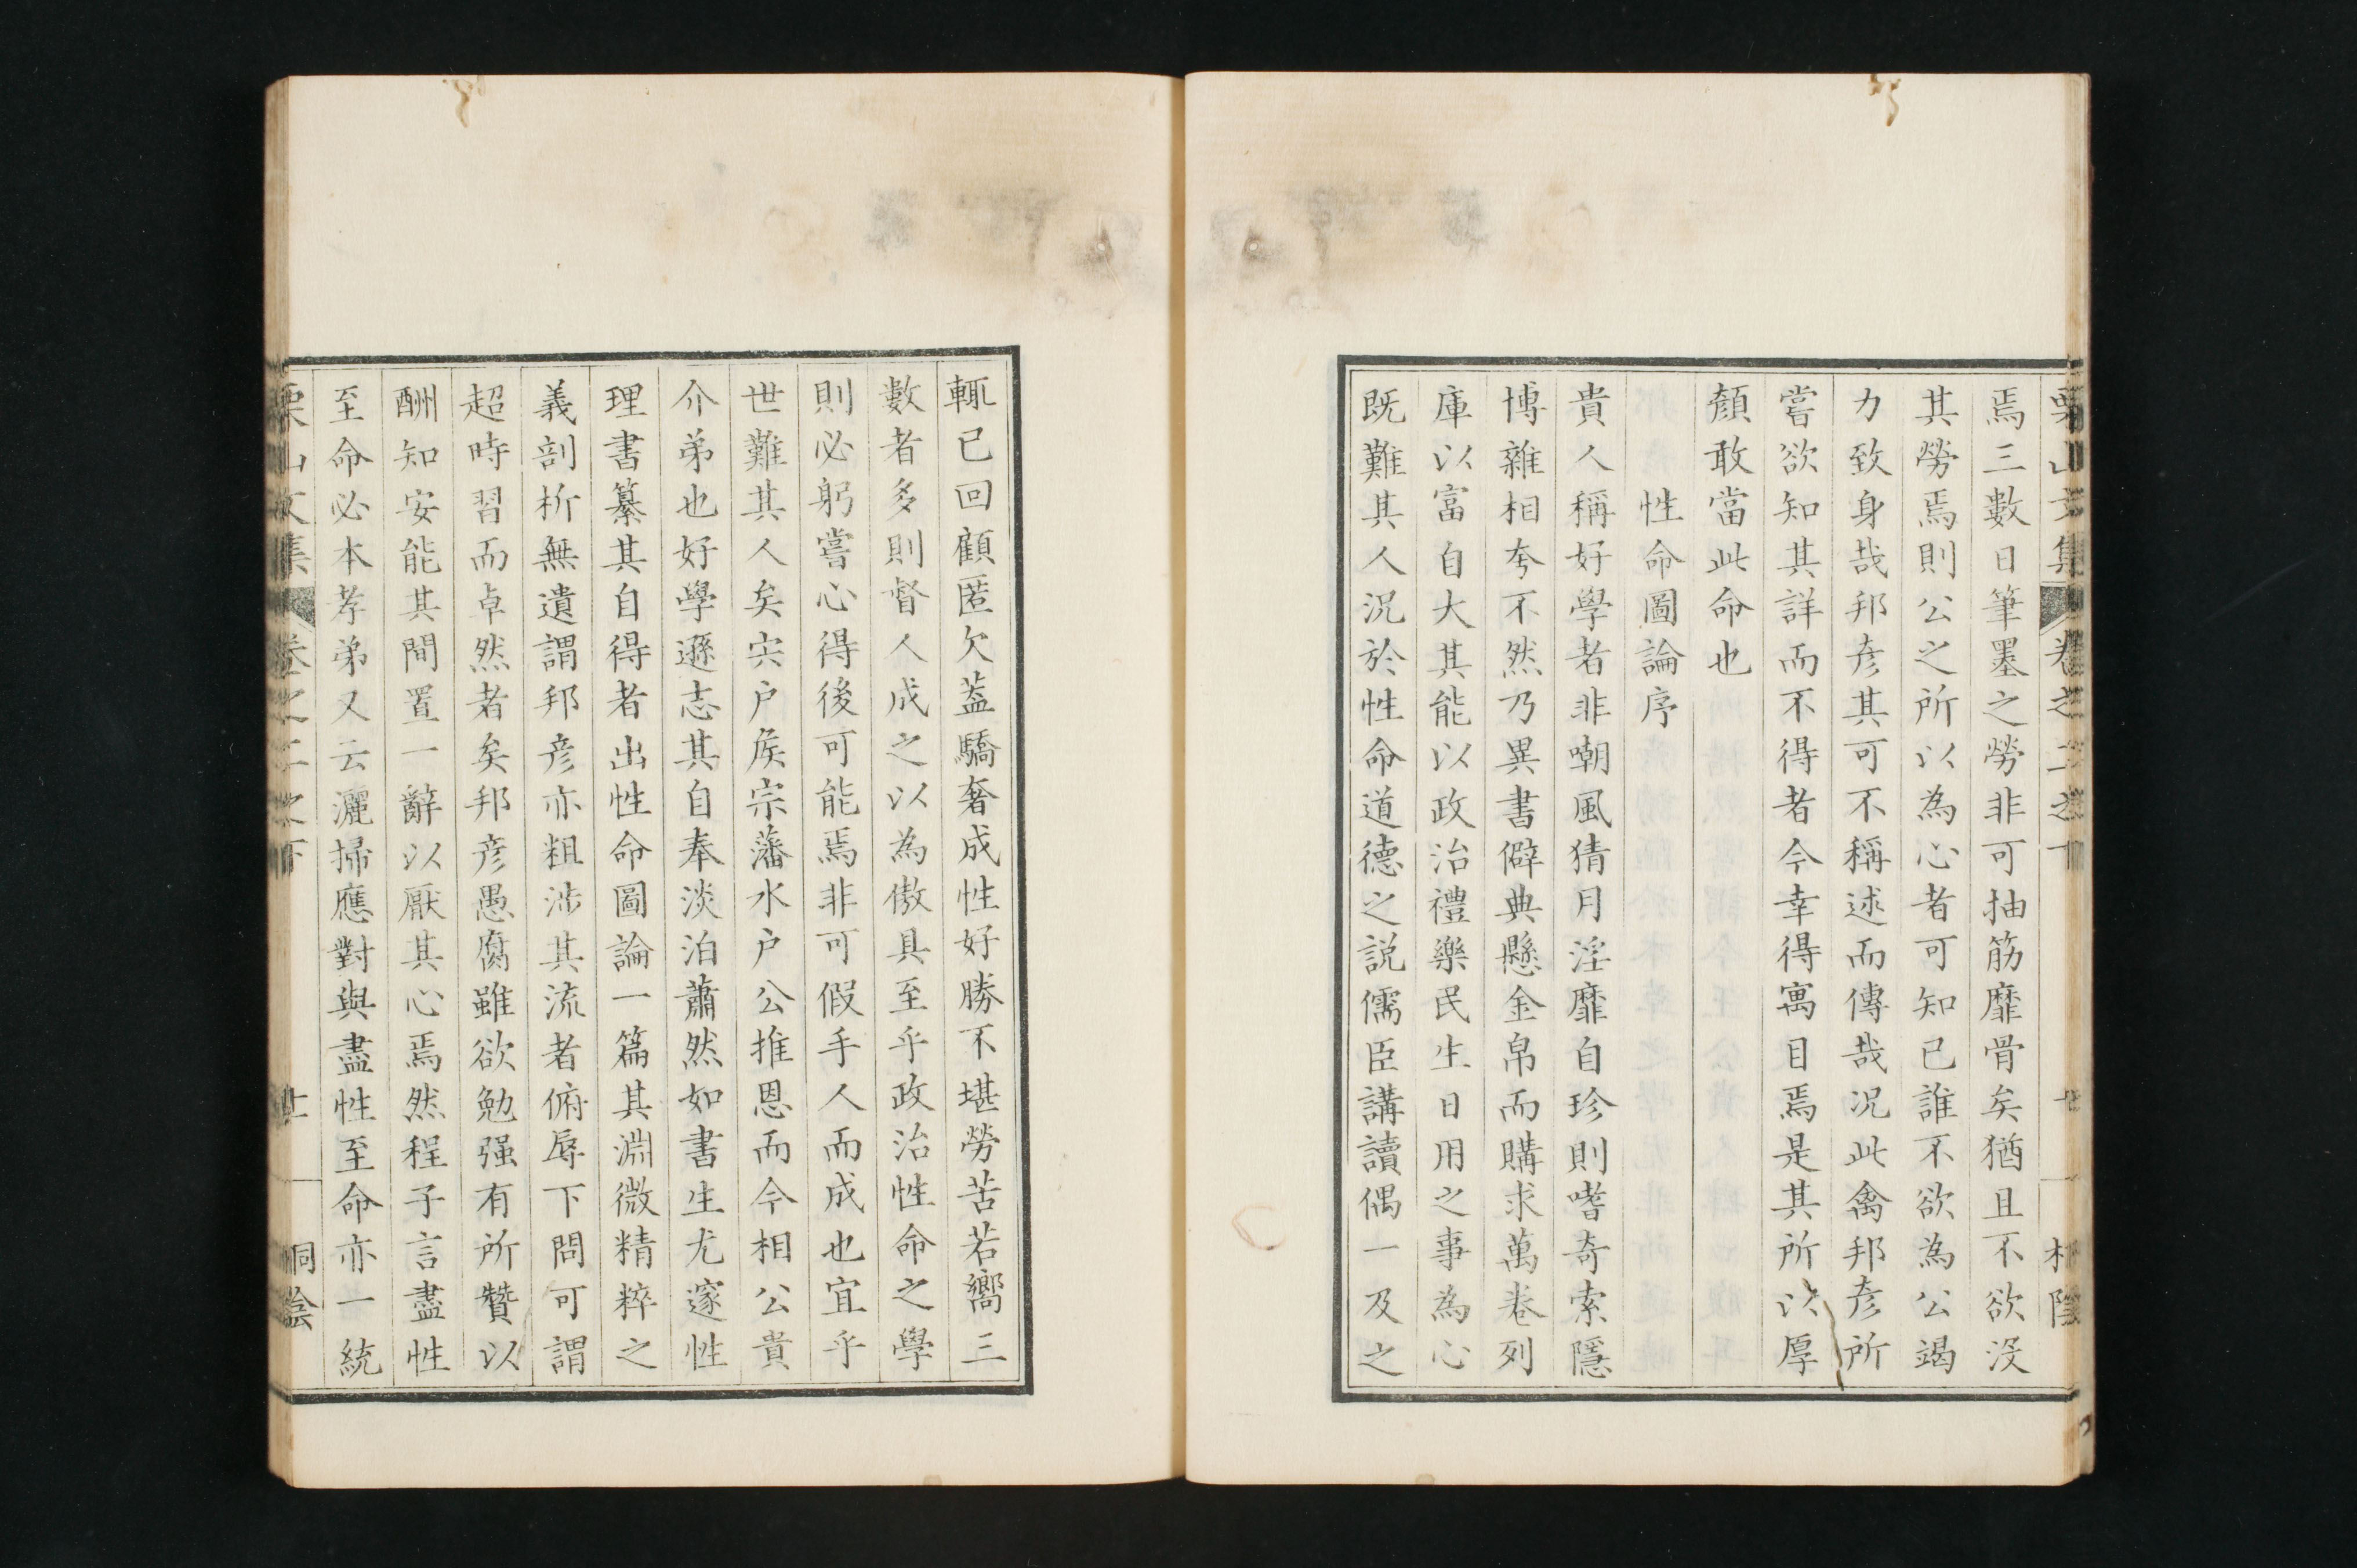 栗山文集 卷之二之下
焉三數日筆墨之勞非可抽筋靡骨矣猶且不欲沒
其勞焉則公之所以為心者可知已誰不欲為公竭
力致身哉邦彥其可不稱述而傳哉况此禽邦彥所
嘗欲知其詳而不得者今幸得寓目焉是其所以厚
顏敢當此命也
性命圖論序
貴人稱好學者非嘲風猜月淫靡自珍則嗜奇索隱
博雜相夸不然乃異書僻典懸金帛而購求萬卷列
庫以富自大其能以政治禮樂民生日用之事為心
既難其人況於性命道德之説儒臣講讀偶一及之
輒已回顧匿欠蓋驕奢成性好勝不堪勞苦若嚮三
數者多則督人成之以為傲具至乎政治性命之學
則必躬嘗心得後可能焉非可假手人而成也宜乎
世難其人矣宍户矦宗藩水户公推恩而今相公貴
介弟也好學遜志其自奉淡泊蕭然如書生尤邃性
理書纂其自得者出性命圖論一篇其淵微精粹之
義剖析無遺謂邦彥亦粗涉其流者俯辱下問可謂
超時習而卓然者矣邦彥愚腐雖欲勉强有所贊以
酬知安能其間置一辭以厭其心焉然程子言盡性
至命必本孝弟又云灑掃應對與盡性至命亦一統
栗山文集 卷之二之下 桐陰